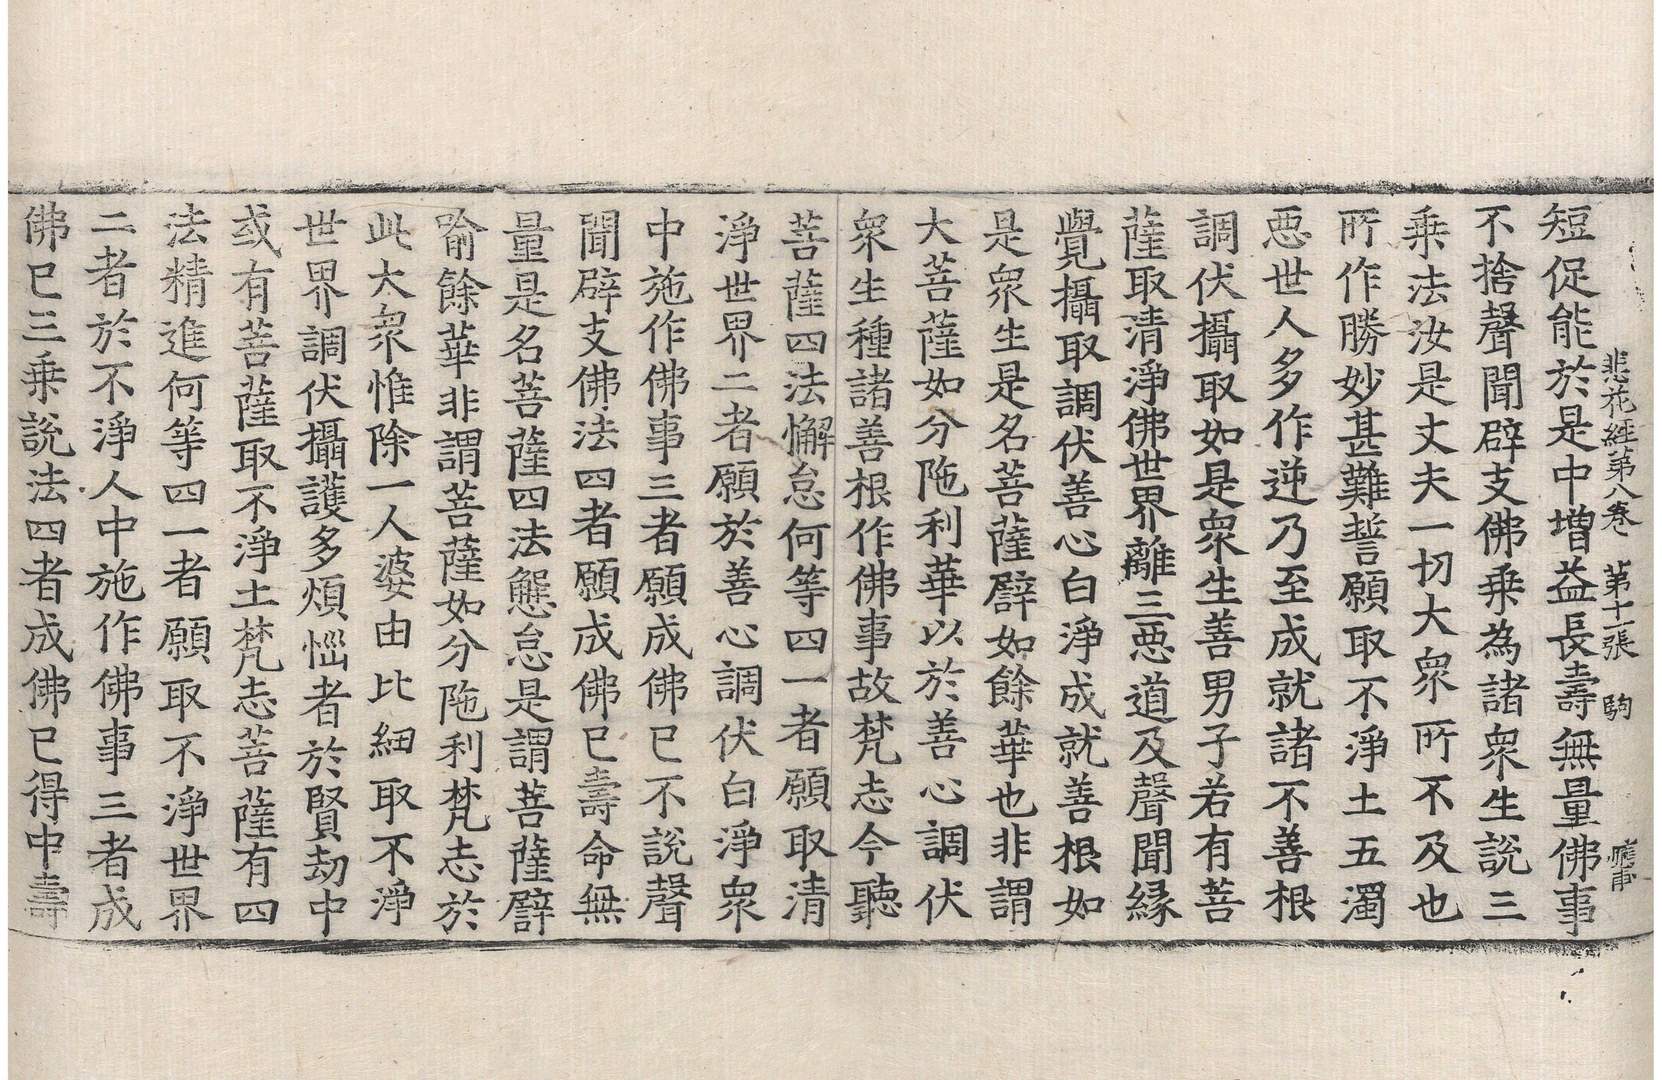 悲花經第八卷 第十一張 駒
短促能於是中增益長壽無量佛事
不捨聲聞辟支佛乗為諸衆生說三
乗法汝是丈夫一切大衆所不及也
所作勝妙甚難誓願取不淨土五濁
惡世人多作逆乃至成就諸不善根
調伏攝取如是衆生善男子若有菩
薩取清淨佛世界離三惡道及聲聞緣
覺攝取調伏善心白淨成就善根如
是衆生是名菩薩譬如餘華也非謂
大菩薩如分陁利華以於善心調伏
衆生種諸善根作佛事故梵志今聽
菩薩四法懈怠何等四一者願取清
淨世界二者願於善心調伏白淨衆
中施作佛事三者願成佛已不說聲
聞辟支佛法四者願成佛已壽命無
量是名菩薩四法懈怠是謂菩薩譬
喻餘華非謂菩薩如分陁利梵志於
此大衆惟除一人婆由比紐取不淨
世界調伏攝護多煩惱者於賢劫中
或有菩薩取不淨土梵志菩薩有四
法精進何等四一者願取不淨世界
二者於不淨人中施作佛事三者成
佛已三乗說法四者成佛已得中壽